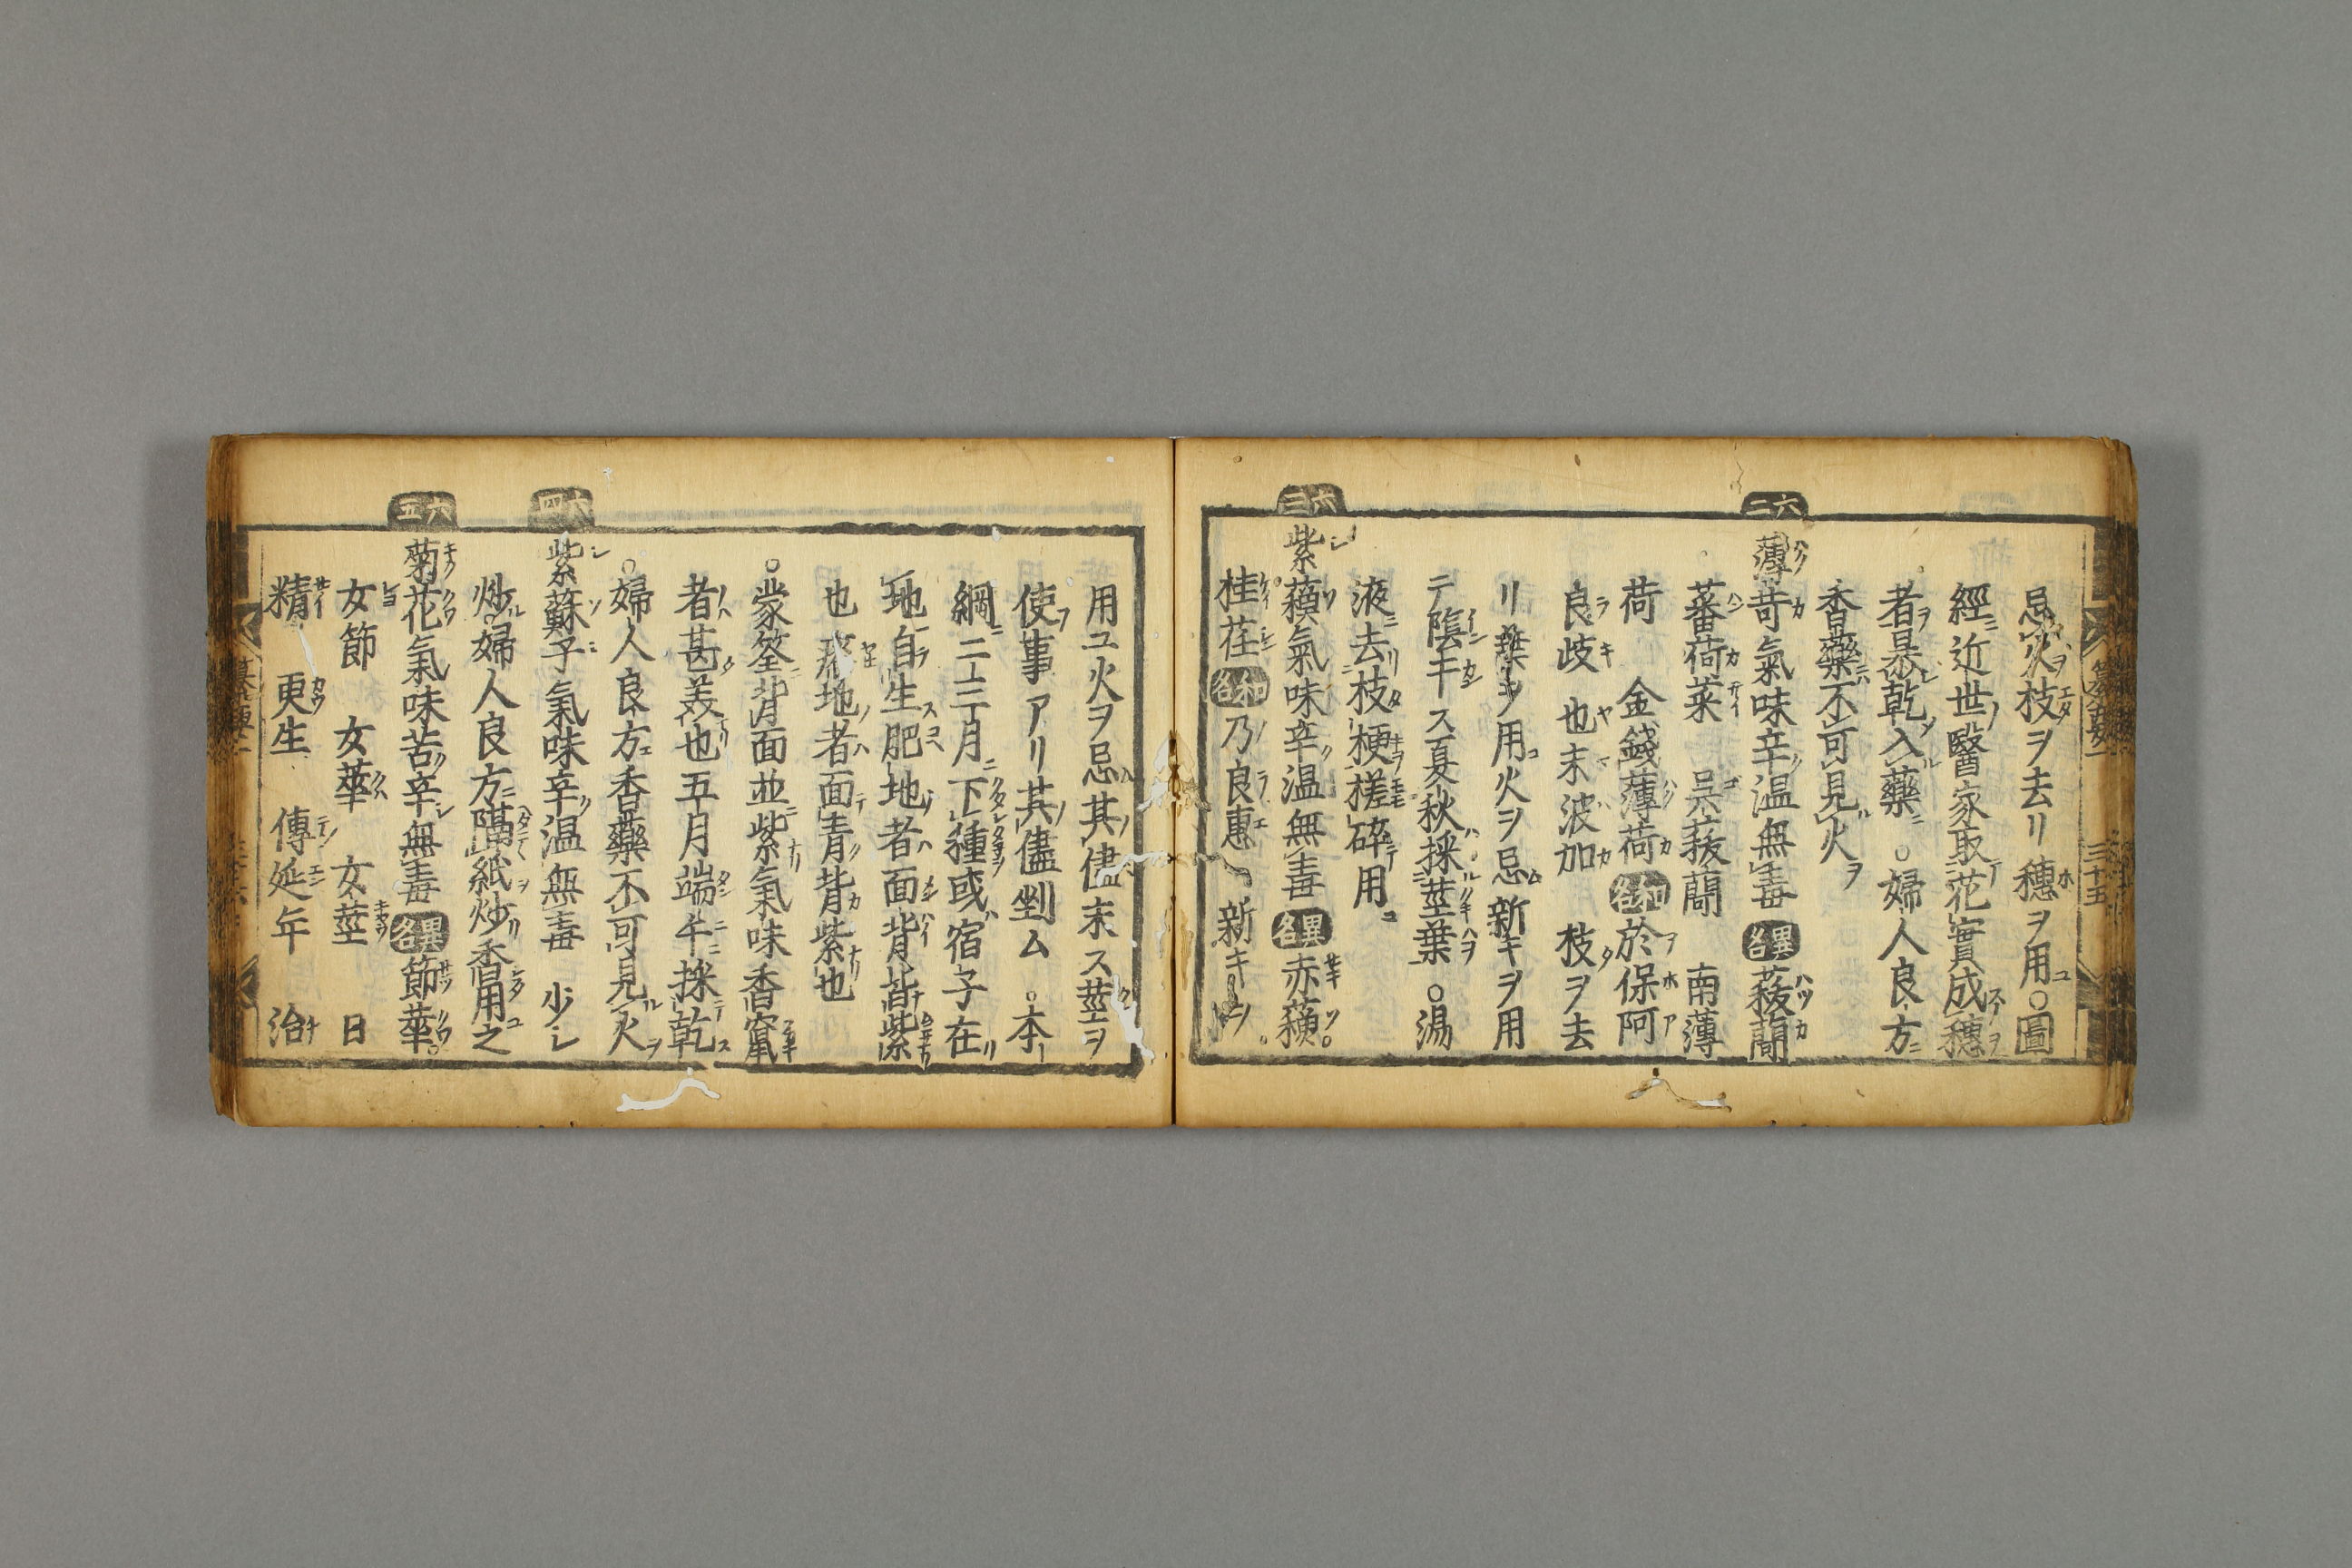 忌火枝ヲ去リ穗ヲ用○圖
經近世醫家取花實成穗
者暴乾入藥○婦人良方
香藥不可見火
六二
薄苛氣味辛温無毒異名菝䕞
蕃荷菜 吳菝䕞 南薄
荷 金錢薄荷和名於保阿
良歧 也末波加 枝ヲ去
リ葉ヲ用火ヲ忌新キヲ用
陰干ス夏秋採莖葉○湯
液去枝梗搓碎用
六三
紫蘓氣味辛温無毒異名赤蘓
桂荏和名乃良惠 新キヲ
用ユ火ヲ忌其儘末ス莖ヲ
使事アリ其儘剉ム○本
綱二三月下種或宿子在
地自生肥地者面背皆紫
也瘠地者面青背紫也
○蒙筌背面並紫氣味香竄
者甚美也五月端午採乾
○婦人良方香藥不可見火
六四
紫蘇子氣味辛温無毒 少シ
炒婦人良方隔紙炒香用之
六五
菊花氣味苦辛無毒異名節華
女節 女華 女莖 日
精 更生 傳延年 治